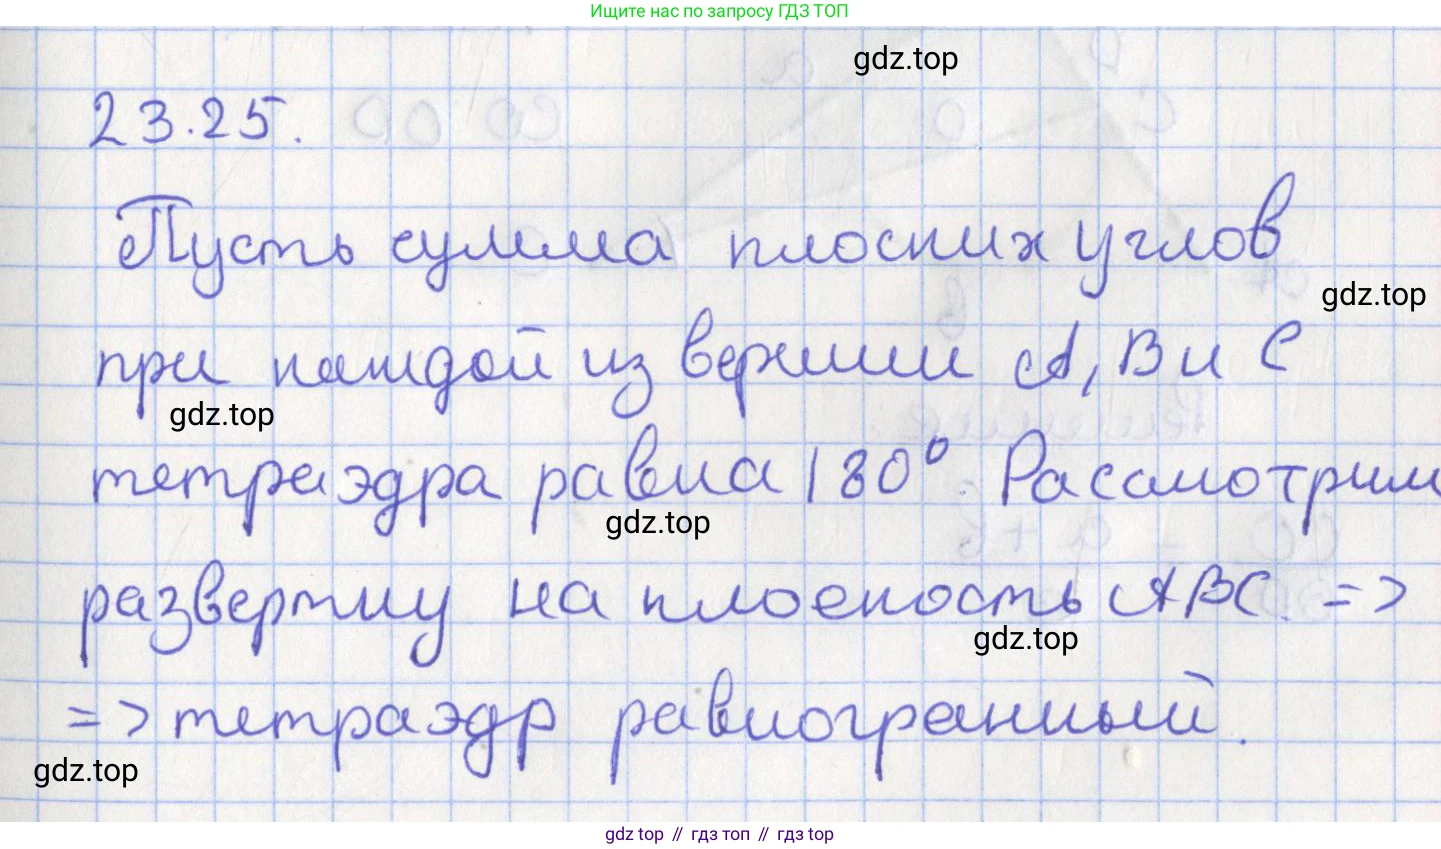 Ищите нас по запросу ГДЗ ТОП
gdz.top
23.25.
Пусть сумма плоских углов
gdz.top
при каждой из вершин A, B и C
gdz.top
тетраэдра равна 180° Рассмотрим
gdz.top
развертку на плоскость ABC. =>
gdz.top
=> тетраэдр равногранный.
gdz.top
gdz top // гдз топ // gdz top